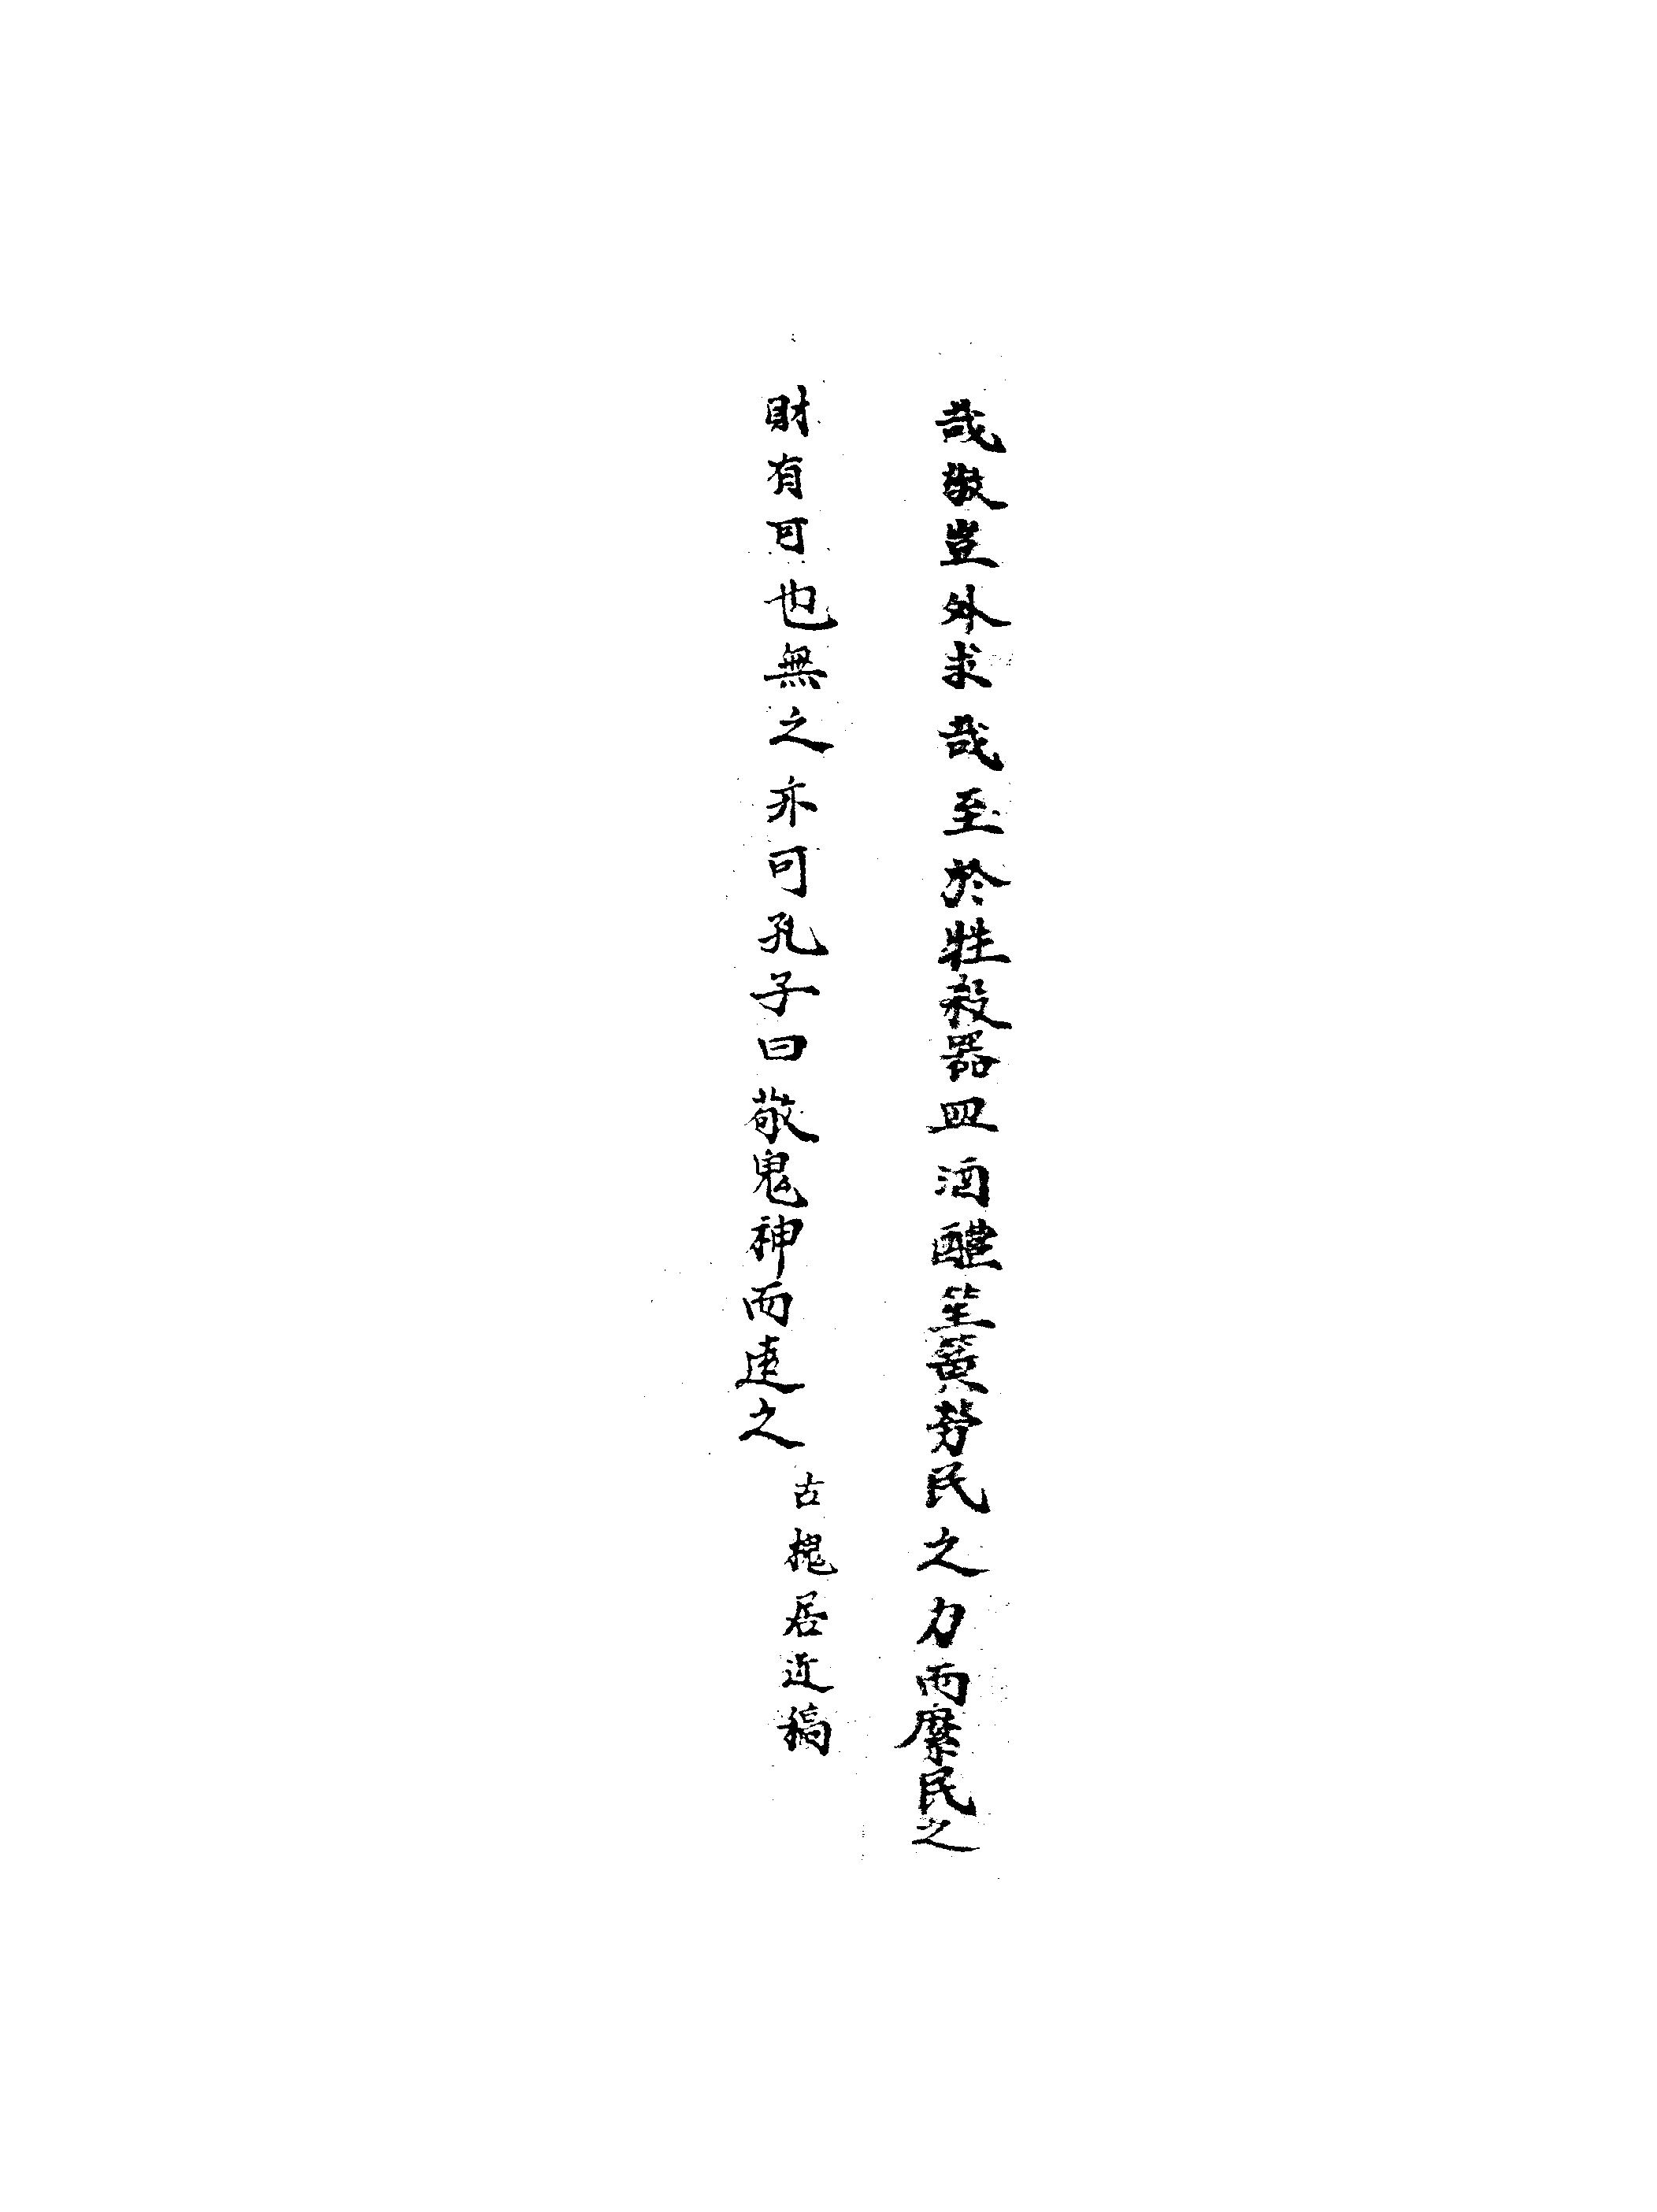 哉敬豈外求哉至於牲殺器皿酒醴笙簧勞民之力而糜民之
財有可也無之亦可孔子曰敬鬼神而遠之
古槐居近稿